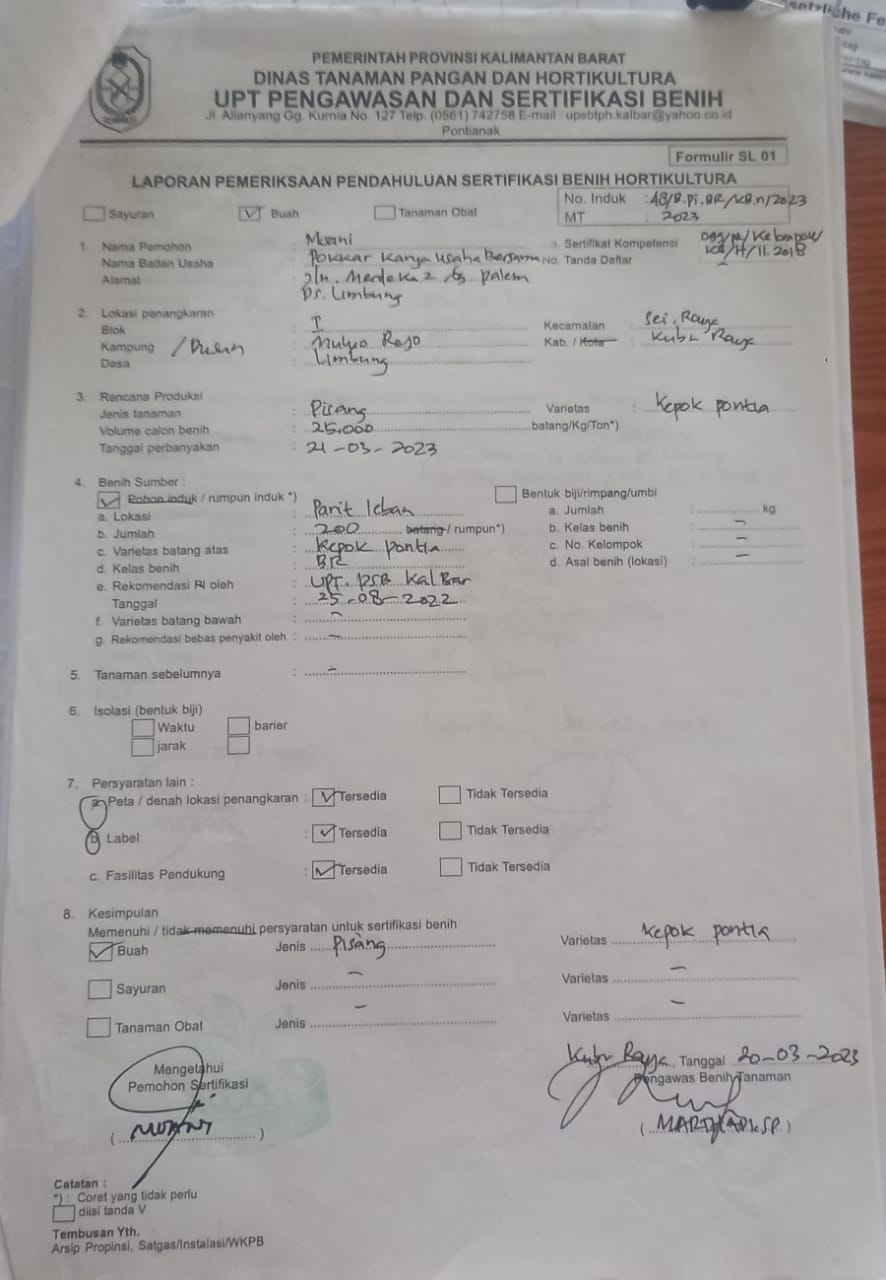 setzliche Fe
PEMERINTAH PROVINSI KALIMANTAN BARAT
DINAS TANAMAN PANGAN DAN HORTIKULTURA
UPT PENGAWASAN DAN SERTIFIKASI BENIH
Jl. Alianyang Gg. Kurnia No. 127 Telp. (0561) 742758 E-mail : upsbtph.kalbar@yahoo.co.id
Pontianak
Formulir SL 01
LAPORAN PEMERIKSAAN PENDAHULUAN SERTIFIKASI BENIH HORTIKULTURA
Sayuran V Buah Tanaman Obat
No. Induk : 48/B.Pi.BR/KB.n/2023
MT : 2023
1. Nama Pemohon : Muani Sertifikat Kompetensi
Nama Badan Usaha : Pokkar Karya Usaha Bersama No. Tanda Daftar : /H/11.2018
Alamat : Jln. Merdeka 2 Gg. Palem
Ds. Limbung
2. Lokasi penangkaran
Blok : I Kecamatan : Sei. Raya
Kampung / Dusun : Mulyo Rejo Kab. / Kota : Kubu Raya
Desa : Limbung
3. Rencana Produksi
Jenis tanaman : Pisang Varietas : Kepok pontia
Volume calon benih : 25.000 batang/Kg/Ton*)
Tanggal perbanyakan : 21-03-2023
4. Benih Sumber :
V Pohon induk / rumpun induk *) Bentuk biji/rimpang/umbi
a. Lokasi : Parit Leban a. Jumlah : kg
b. Jumlah : 200 batang / rumpun*) b. Kelas benih : -
c. Varietas batang atas : Kepok pontia c. No. Kelompok : -
d. Kelas benih : BR d. Asal benih (lokasi) : -
e. Rekomendasi PI oleh : UPT. PSB KalBar
Tanggal : 25-08-2022
f. Varietas batang bawah : -
g. Rekomendasi bebas penyakit oleh : -
5. Tanaman sebelumnya : -
6. Isolasi (bentuk biji)
Waktu barier
jarak
7. Persyaratan lain :
a. Peta / denah lokasi penangkaran : V Tersedia Tidak Tersedia
b. Label : V Tersedia Tidak Tersedia
c. Fasilitas Pendukung : V Tersedia Tidak Tersedia
8. Kesimpulan
Memenuhi / tidak memenuhi persyaratan untuk sertifikasi benih
V Buah Jenis Pisang Varietas Kepok pontia
Sayuran Jenis - Varietas -
Tanaman Obat Jenis - Varietas -
Kubu Raya, Tanggal 20-03-2023
Mengetahui Pengawas Benih Tanaman
Pemohon Sertifikasi
( MUANI )
Catatan :
*) : Coret yang tidak perlu
diisi tanda V
Tembusan Yth.
Arsip Propinsi, Satgas/Instalasi/WKPB